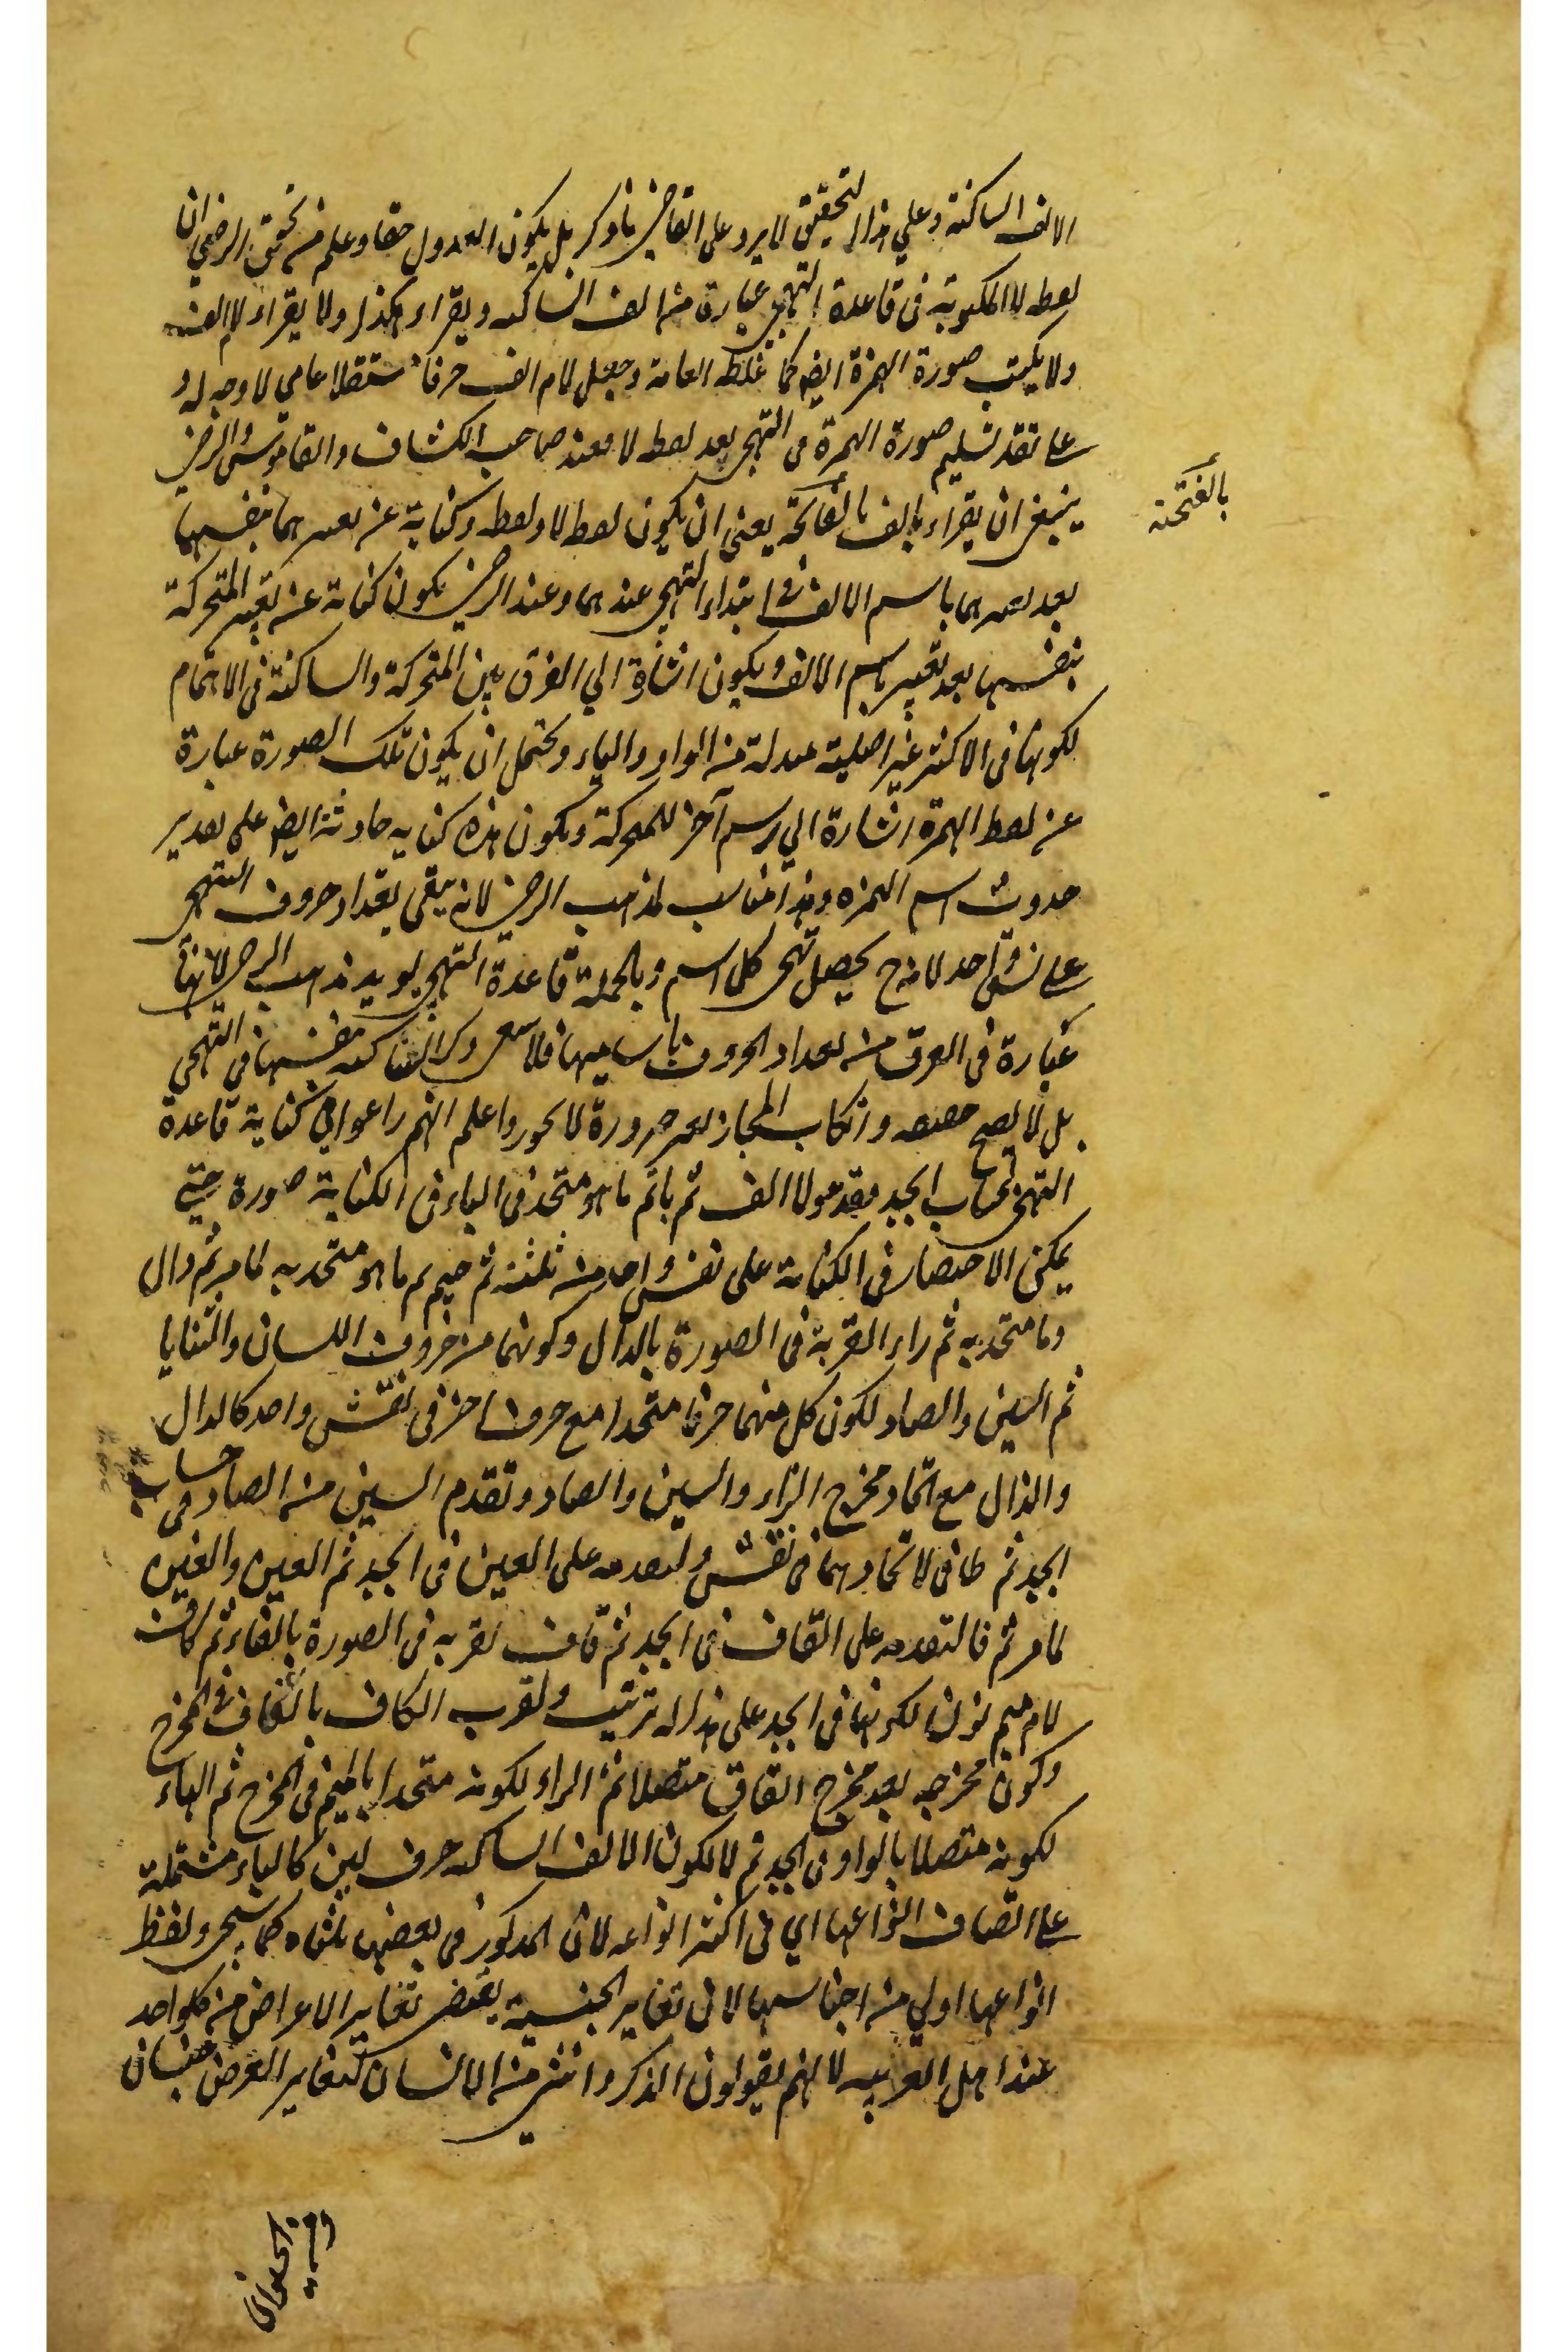 الالف الساكنة وعلي هذا التحقيق لا يرد على القاضي ما ذكر بل يكون العدول حقا وعلم من تحقيق الرضي ان
لفظ لا المكتوبة فى قاعدة التهجي عبارة من الف الساكنه ويقراء هكذا ولا يقراء لام الف
ولا يكتب صورة الهمزة ايضا كما غلط العامة وجعل لام الف حرفا مستقلا عامى لا وجه له و
على تقد تسليم صورة الهمزة فى التهجي بعد لفظ لا فعند صاحب الكشاف والقاموس والرضي
ينبغي ان يقراء بالف بالفتحة يعني ان يكون لفظ لا ولفظه وكناية عن نفسها
بالفتحة
بعد باسم الالف فى ابتداء التهجي عندهما وعند الرضي يكون كناية عن تعبير المتحركة
بنفسها بعد تعبير باسم الالف ويكون اشارة الي الفرق بين المتحركة والساكنة فى الاهتمام
لكونها فى الاكثر غير اصلية مبدلة من الواو والياء ويحتمل ان يكون تلك الصورة عبارة
عن لفظ الهمزة اشارة الي اسم آخر للمتحركة ويكون هذه كنايه حادثة ايضا على تقدير
حدوث اسم الهمزه وهذا مناسب لمذهب الرضي لانه يبقى تعداد حروف التهجي
على نسق واحد لانه ح يحصل تهجي كل اسم وبالجملة قاعدة التهجي يويد مذهب الرضي لانها
عبارة فى العرف من تعداد الحروف باساميها فلا ذكر الساكنه بنفسها فى التهجي
بل لا يصح حقيقه وارتكاب المجاز بغير ضرورة لا يجوز واعلم انهم راعوا في كتابة قاعدة
التهجي حساب ابجد فقدموا لا الف ثم با ثم ما هو متحد فى الباء فى الكتابة صورة حتى
يمكن الاختصار فى الكتابة على نقش واحد من ثلثة ثم جيم ثم ما هو متحد به لما مر ثم دال
وما متحد به ثم راء القربة فى الصورة بالدال وكونهما من حروف اللسان والثنايا
ثم السين والصاد لكون كل منهما حرفا متحدا مع حرف اخر فى نقش واحد كالدال
والذال مع اتحاد مخرج الزاء والسين والصاد وتقدم السين من الصاد فى حساب
ابجد ثم طا في لاتحادهما فى نقش ولتقدمه على العين فى ابجد ثم العين والغين
لما مر ثم فا لتقدمه على القاف فى ابجد ثم قاف لقربه فى الصورة بالفاء ثم كاف
لام ميم نون لكونها فى ابجد على هذا له ترتيب ولقرب الكاف بالقاف فى المخرج
وكون مخرجه بعد مخرج القاف متصلا ثم الراء لكونه متحدا بالميم فى المخرج ثم الهاء
لكونه متصلا بالواو فى ابجد ثم لا لكون الالف الساكنه حرف لين كالياء مشتملة
على اتصاف انواعها اي فى اكثر انواعه لان المذكور فى بعضها ثلثاه كما سيجي ولفظ
انواعها اولي من اجناسها لان تغاير الجنسية يقتضي تغاير الاعراض من كلواحد
عند اهل العربيه لانهم يقولون الذكر وانثي من الانسان لتغاير الغرض جنسان